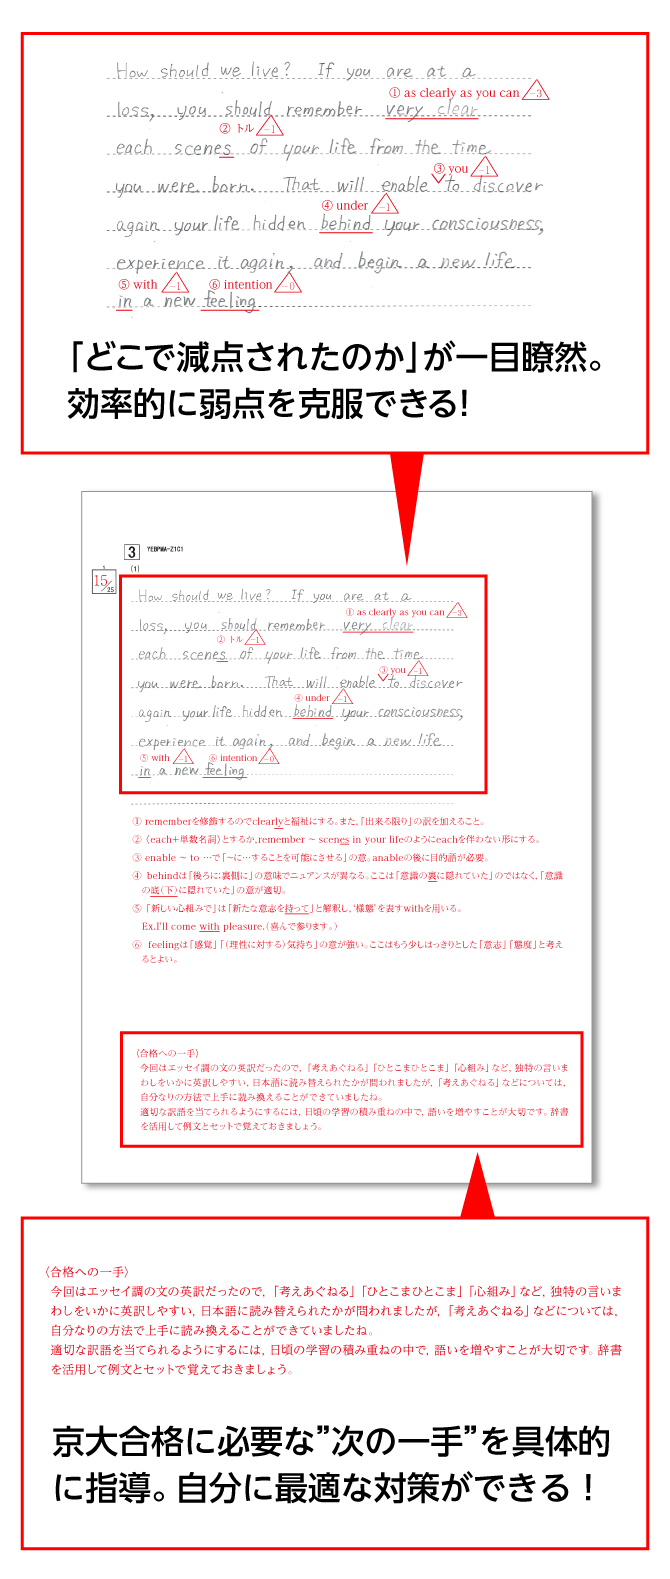 How should we live? If you are at a
① as clearly as you can −3
loss, you should remember very clear
② トル −1
each scenes of your life from the time
③ you −1
you were born. That will enable to discover
④ under −1
again your life hidden behind your consciousness,
experience it again, and begin a new life
⑤ with −1 ⑥ intention −0
in a new feeling
「どこで減点されたのか」が一目瞭然。
効率的に弱点を克服できる!
3 YEBPWA-Z1C1
1 (1)
15/25
How should we live? If you are at a
① as clearly as you can −3
loss, you should remember very clear
② トル −1
each scenes of your life from the time
③ you −1
you were born. That will enable to discover
④ under −1
again your life hidden behind your consciousness,
experience it again, and begin a new life
⑤ with −1 ⑥ intention −0
in a new feeling
① rememberを修飾するのでclearlyと福祉にする。また,「出来る限り」の訳を加えること。
② 〈each+単数名詞〉とするか,remember ~ scenes in your lifeのようにeachを伴わない形にする。
③ enable ~ to …で「~に…することを可能にさせる」の意。anableの後に目的語が必要。
④ behindは「後ろに;裏側に」の意味でニュアンスが異なる。ここは「意識の裏に隠れていた」のではなく,「意識
の底(下)に隠れていた」の意が適切。
⑤ 「新しい心組みで」は「新たな意志を持って」と解釈し,‘様態’を表すwithを用いる。
Ex.I'll come with pleasure.(喜んで参ります。)
⑥ feelingは「感覚」「(理性に対する)気持ち」の意が強い。ここはもう少しはっきりとした「意志」「態度」と考え
るとよい。
〈合格への一手〉
今回はエッセイ調の文の英訳だったので,「考えあぐねる」「ひとこまひとこま」「心組み」など,独特の言いま
わしをいかに英訳しやすい,日本語に読み替えられたかが問われましたが,「考えあぐねる」などについては,
自分なりの方法で上手に読み換えることができていましたね。
適切な訳語を当てられるようにするには,日頃の学習の積み重ねの中で,語いを増やすことが大切です。辞書
を活用して例文とセットで覚えておきましょう。
〈合格への一手〉
今回はエッセイ調の文の英訳だったので,「考えあぐねる」「ひとこまひとこま」「心組み」など,独特の言いま
わしをいかに英訳しやすい,日本語に読み替えられたかが問われましたが,「考えあぐねる」などについては,
自分なりの方法で上手に読み換えることができていましたね。
適切な訳語を当てられるようにするには,日頃の学習の積み重ねの中で,語いを増やすことが大切です。辞書
を活用して例文とセットで覚えておきましょう。
京大合格に必要な”次の一手”を具体的
に指導。自分に最適な対策ができる！